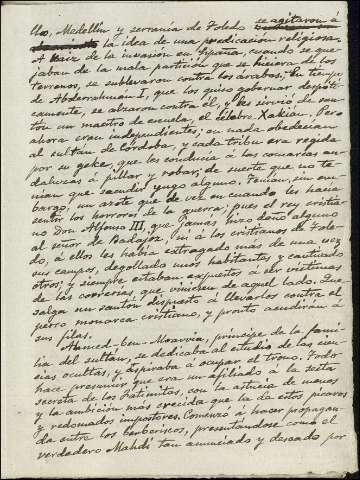 llo, Medellín y serranía de Toledo se agitaron á
la idea de una predicación religiosa.
A raíz de la invasión en España, cuando se que-
jaban de la mala partición que se hiciera de los
terrenos, se sublevaron contra los árabes; en tiempo
de Abderrahman I, que los quiso gobernar despóti-
camente, se alzaron contra él, y les sirvió de san-
tón un maestro de escuela, el célebre Xakian. Pero
ahora eran independientes; en nada obedecían
al sultán de Córdoba, y cada tribu era regida
por su geke, que las conducía á las comarcas an-
daluzas á pillar y robar; de suerte que no te-
nían que sacudir yugo alguno. Tenían, sin em-
bargo, un azote que de vez en cuando les hacía
sentir los horrores de la guerra; pues el rey cristia-
no Don Alfonso III, que jamás hizo daño alguno
al señor de Badajoz, ni á los cristianos de Tole-
do, á ellos les había estragado más de una vez
sus campos, degollado unos habitantes y cautivado
otros; y siempre estaban expuestos á ser víctimas
de las correrías que viniesen de aquel lado. Que
salga un santón dispuesto á llevarlos contra el
perro monarca cristiano, y pronto acudirán á
sus filas.
Ahmed-ben-Moavia, príncipe de la fami-
lia del sultán, se dedicaba al estudio de las cien-
cias ocultas, y aspiraba á ocupar el trono. Todo
hace presumir que era un afiliado á la secta
secreta de los Fatimitas, con la astucia de menos
y la ambición más crecida que la da estos pícaros
y redomados impostores. Comenzó á hacer propagan-
da entre los berberiscos, presentándose como el
verdadero Mahdí tan anunciado y deseado por